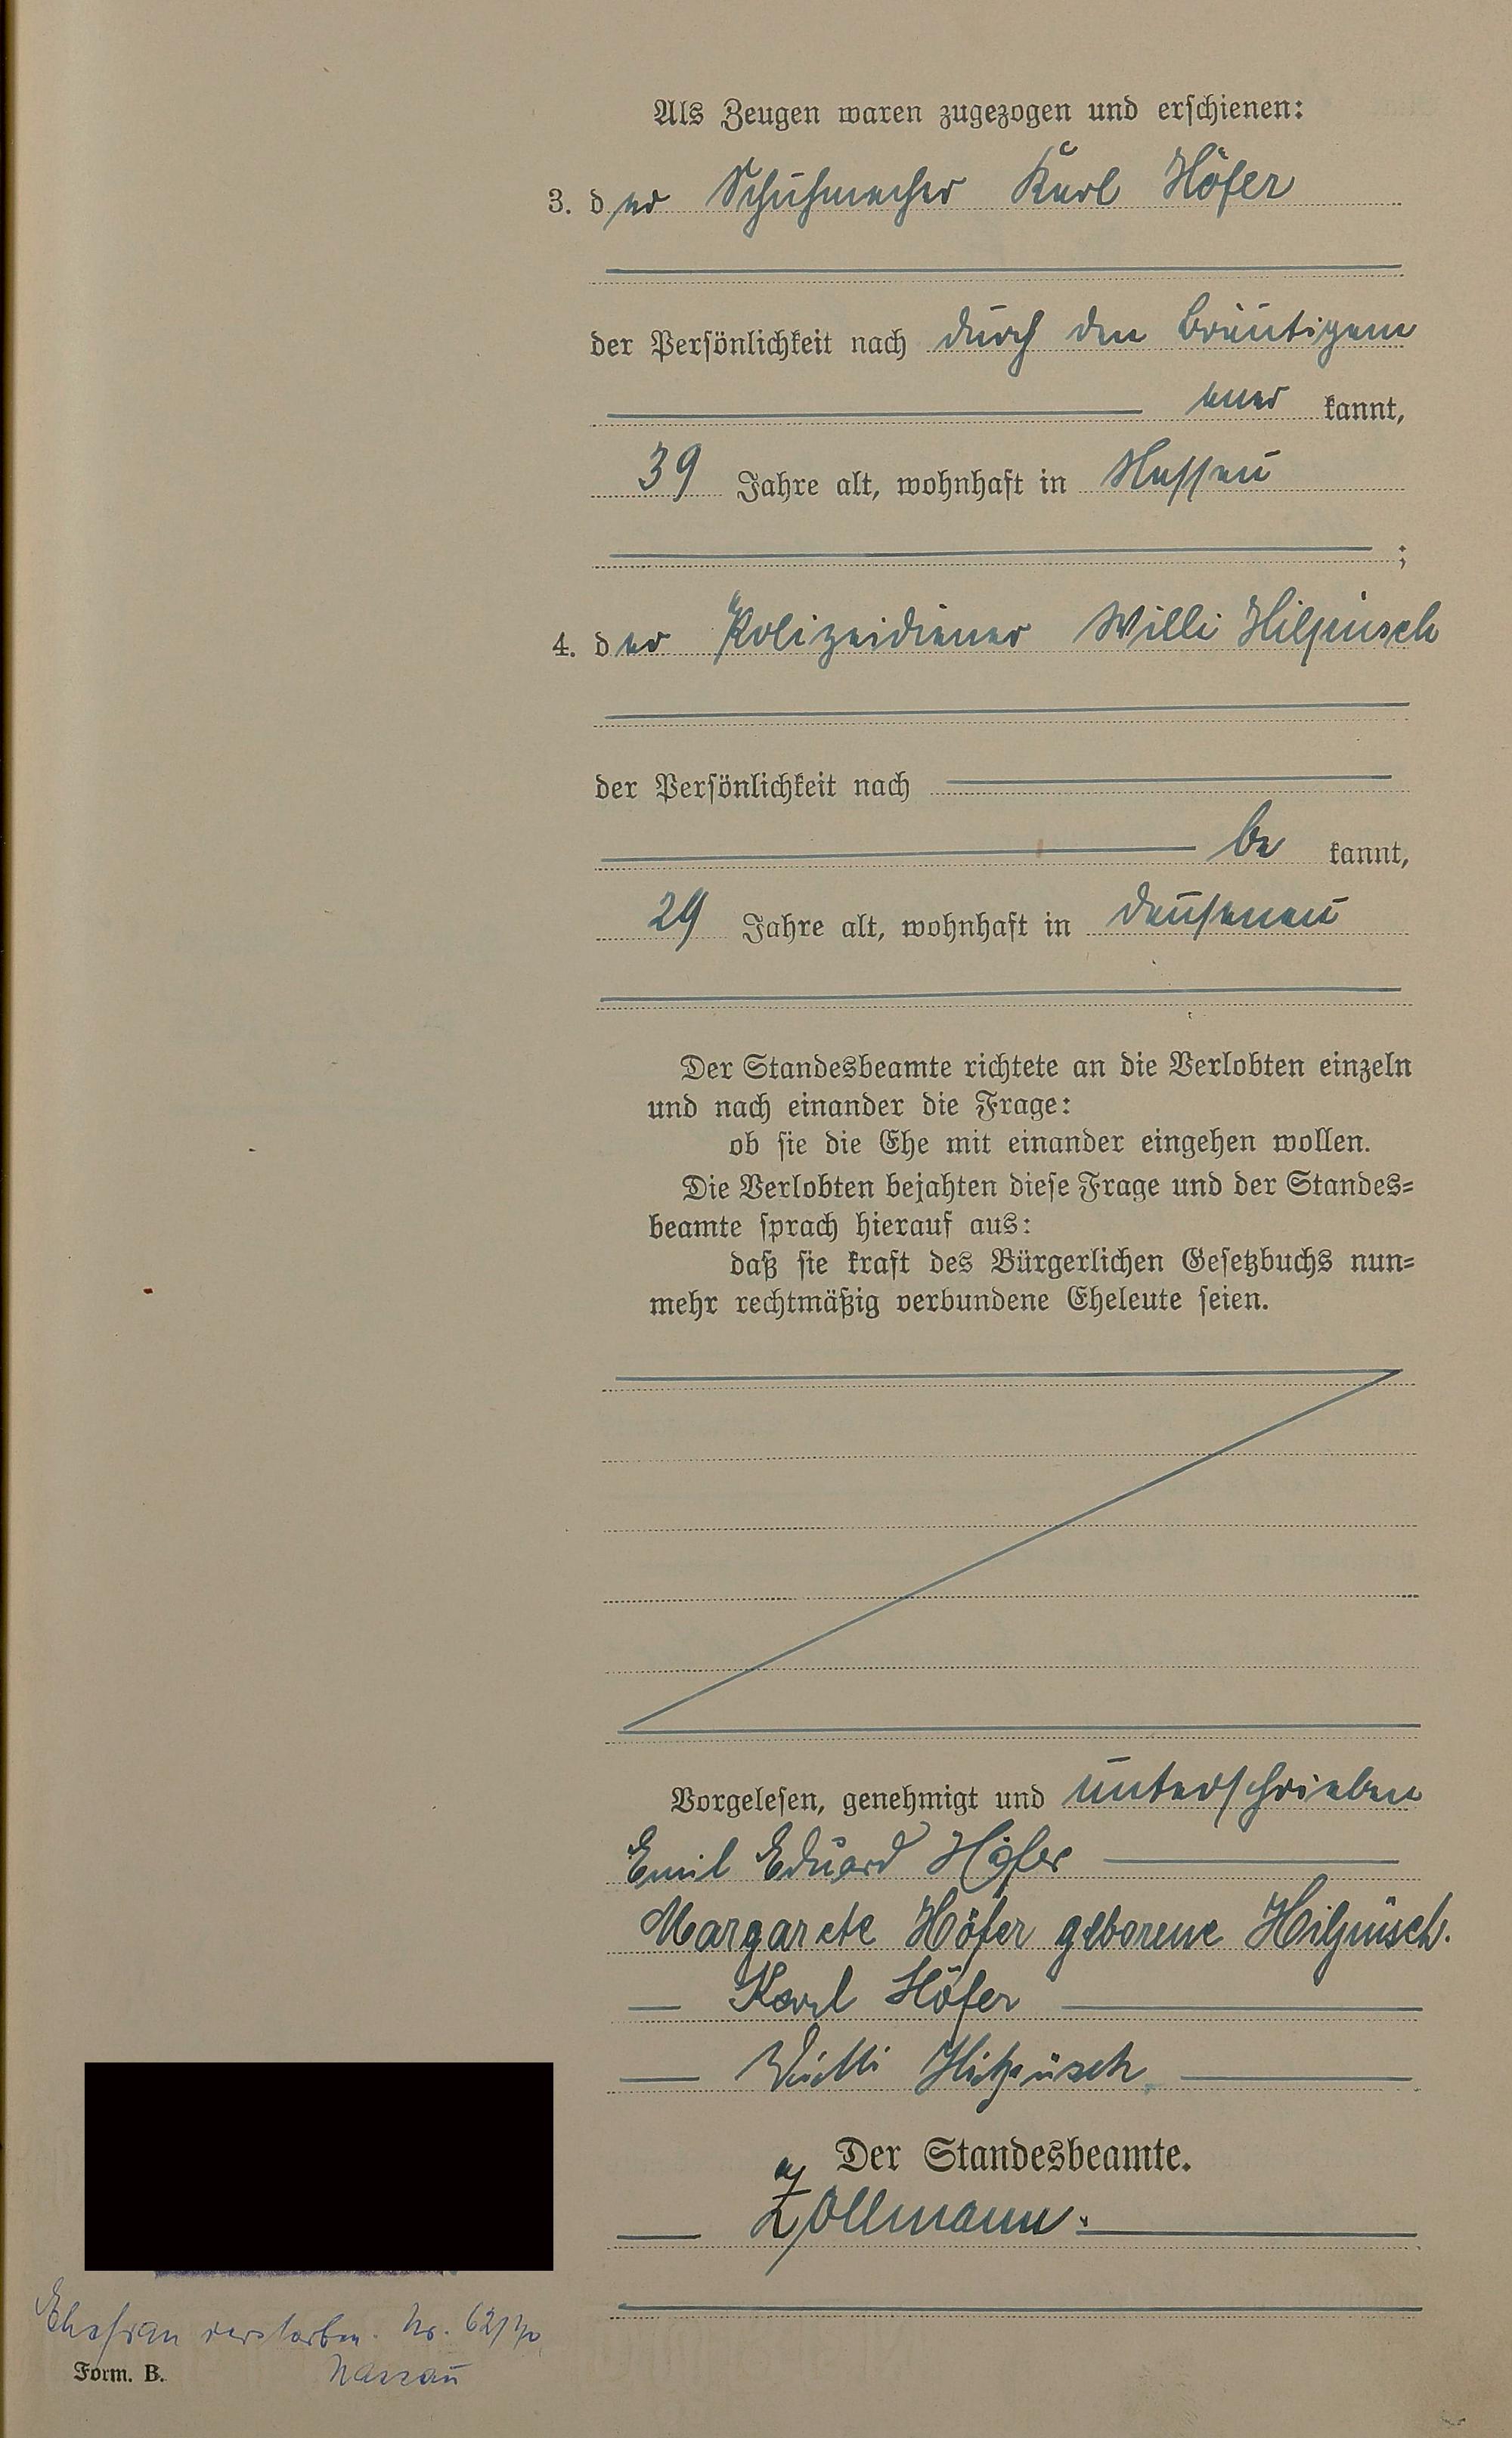 Als Zeugen waren zugezogen und erschienen:
3. der Schuhmacher Karl Höfer
der Persönlichkeit nach durch den Bräutigam
aner kannt,
39 Jahre alt, wohnhaft in Nassau
;
4. der Polizeidiener Willi Hilpüsch
der Persönlichkeit nach
be kannt,
29 Jahre alt, wohnhaft in Dausenau
Der Standesbeamte richtete an die Verlobten einzeln
und nach einander die Frage:
ob sie die Ehe mit einander eingehen wollen.
Die Verlobten bejahten diese Frage und der Standes=
beamte sprach hierauf aus:
daß sie kraft des Bürgerlichen Gesetzbuchs nun=
mehr rechtmäßig verbundene Eheleute seien.
Vorgelesen, genehmigt und unterschrieben
Emil Eduard Höfer
Margarete Höfer geborene Hilpüsch.
Karl Höfer
Willi Hilpüsch
Der Standesbeamte.
Zollmann.
Ehefrau verstorben. Nr.
Nassau
Form. B.